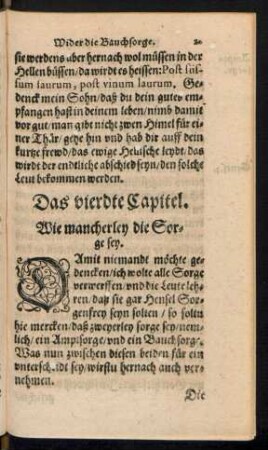 Wider die Bauchsorge.
sie werdens aber hernach wol müssen in der
Hellen büssen / da wirdt es heissen: Post ful-
sum taurum, post vinum taurum, Ge-
denck mein Sohn / daß du dein gutes em-
pfangen hast in deinem leben / nimb damit
vor gut / man gibt nicht zwen Himel für ei-
ner Thür / gehe hin vnd hab dir auff dein
kurtze frewd / das ewige Hellische leydt / das
wirdt der endtliche abschied seyn / den solche
Leut bekommen werden.
Das vierdte Capitel.
Wie mancherley die Sor-
ge sey.
DAmit niemandt möchte ge-
dencken / ich wolte alle Sorge
verwerffen / vnd die Leute leh-
ren / daß sie gar Hensel Sor-
genfrey seyn solten / so soltu
hie mercken / daß zweyerley sorge sey / nem-
lich / ein Amptsorge / vnd ein Bauchsorg /
Was nun zwischen diesen beiden für ein
vnterscheidt sey / wirstu hernach auch ver-
nehmen.
Die